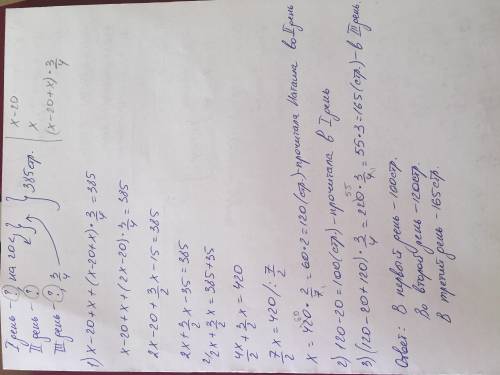 I день - ? на 20 < } x-20
II день - ? } 385 стр. x
III день - ?, 3/4 (x-20+x)·3/4
1) x-20+x+(x-20+x)·3/4=385
x-20+x+(2x-20)·3/4=385
2x-20+3/2x-15=385
2x+3/2x-35=385
2/2x+3/2x=385+35
4x/2+3/2x=420
7/2x=420/:7/2
x=420·2/7=60·2=120(стр.)-прочитала Наташа во II день
2) 120-20=100(стр.)-прочитала в I день
3) (120-20+120)·3/4=220·3/4=55·3=165(стр.)-в III день
Ответ: В первый день-100стр.
Во второй день-120стр.
В третий день-165стр.